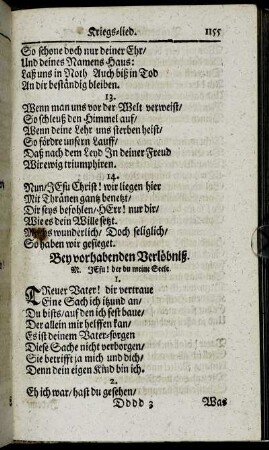 Kriegs-lied. 1155
So schone doch nur deiner Ehr/
Und deines Namens-Haus:
Laß uns in Noth Auch biß in Tod
An dir beständig bleiben.
13.
Wenn man uns vor der Welt verweist/
So schleuß den Himmel auf/
Wenn deine Lehr uns sterben heist/
So fördre unsern Lauff/
Daß nach dem Leyd In deiner Freud
Wir ewig triumphiren.
14.
Nun/JEsu Christ! wir liegen hier
Mit Thränen gantz benetzt/
Dir seys befohlen/HErr! nur dir/
Wie es dein Wille setzt.
wunderlich/ Doch seliglich/
So haben wir gesieget.
Bey vorhabenden Verlöbniß.
M. JEsu! der du meine Seele.
1.
TReuer Vater! dir vertraue
Eine Sach ich itzund an/
Du bists/auf den ich fest baue/
Der allein mir helffen kan/
Es ist deinem Vater-sorgen
Diese Sache nicht verborgen/
Sie betrifft ja mich und dich/
Denn dein eigen Kind bin ich.
2.
Eh ich war/hast du gesehen/
Dddd 3 Was